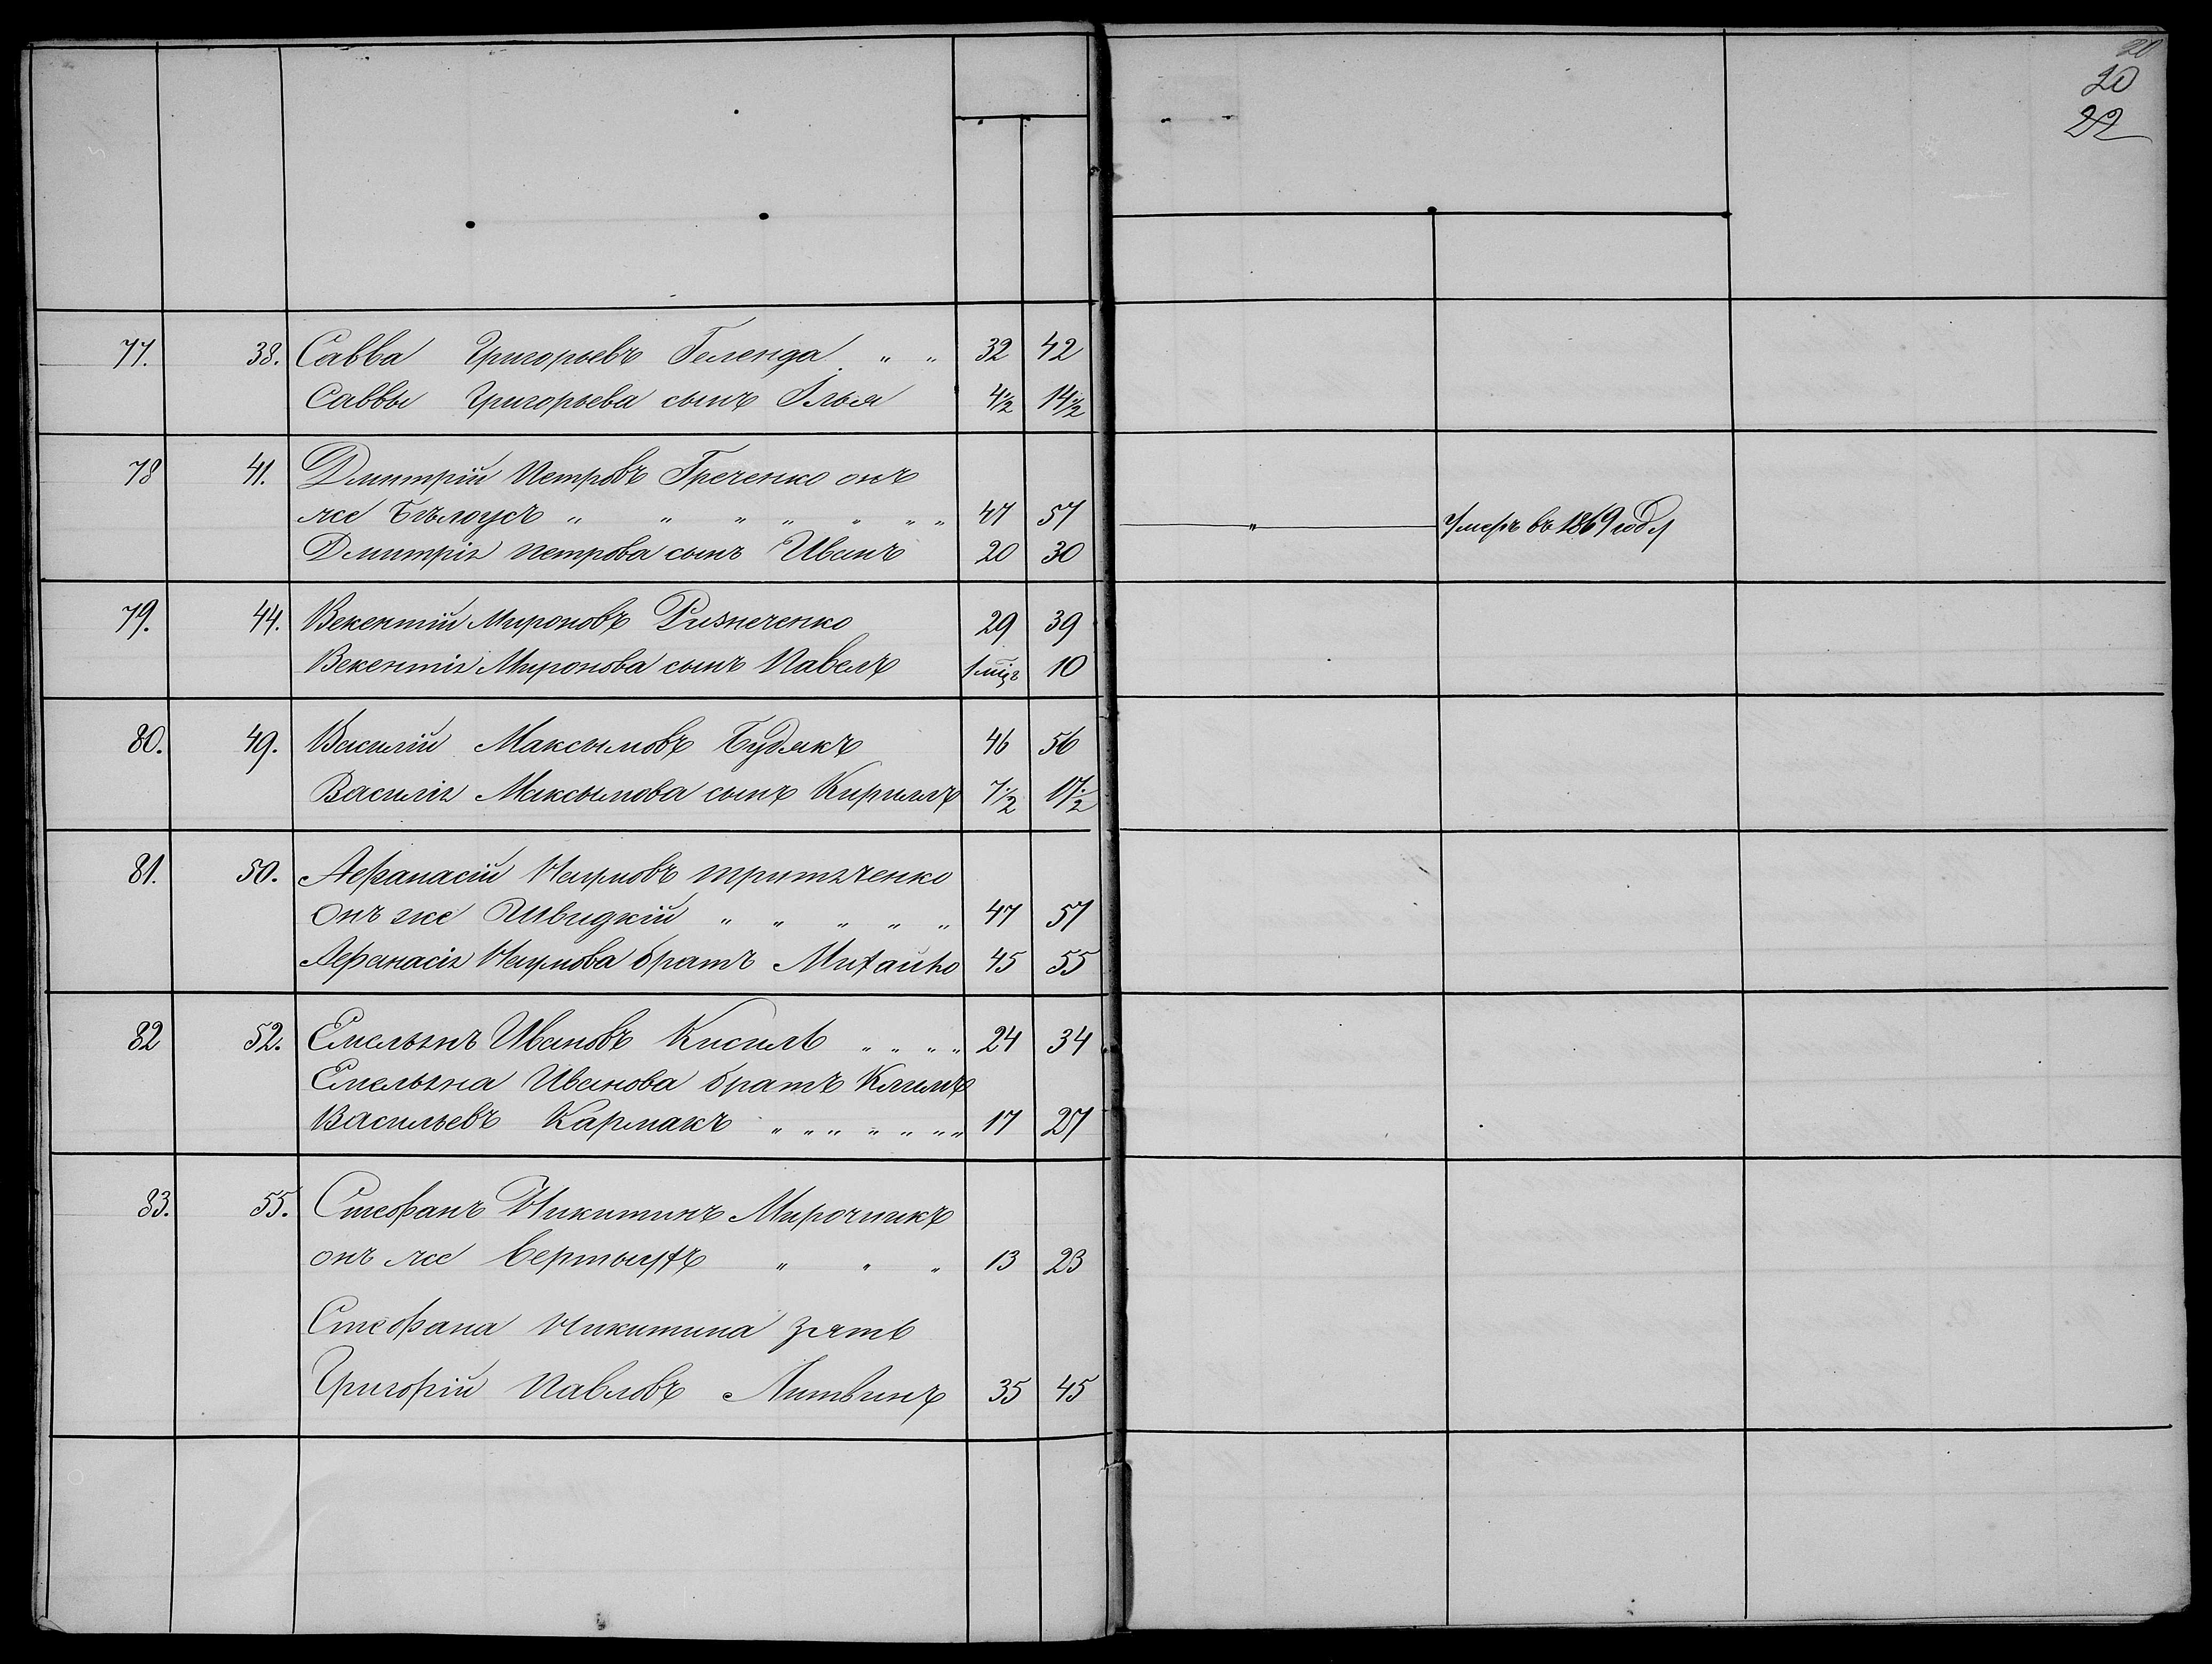 20
20
22
77. 38. Савва Григорьевъ Геленда „ „ 32 42
Саввы Григорьева сынъ Илья 4½ 14½
78 41. Дмитрій Петровъ Греченко онъ
же Бѣлоусъ „ „ „ „ „ „ „ 47 57 „ Умеръ въ 1869 году
Дмитрія Петрова сынъ Иванъ 20 30
79. 44. Векентій Мироновъ Ризнеченко 29 39
Векентія Миронова сынъ Павелъ 1 мцъ 10
80. 49. Василій Максымовъ Будякъ 46 56
Василія Максымова сынъ Кириллъ 7½ 17½
81. 50. Афанасій Наумовъ
Онъ же Швидкій „ „ „ „ „ 47 57
Афанасія Наумова братъ Михайло 45 55
82 52. Емельянъ Ивановъ Кисиль „ „ „ „ 24 34
Емельяна Иванова братъ Климъ
Васильевъ Кармакъ „ „ „ „ „ „ „ 17 27
83. 55. Стефанъ Никитинъ Мирочникъ
онъ же „ „ „ 13 23
Стефана Никитина зять
Григорій Павловъ Литвинъ 35 45